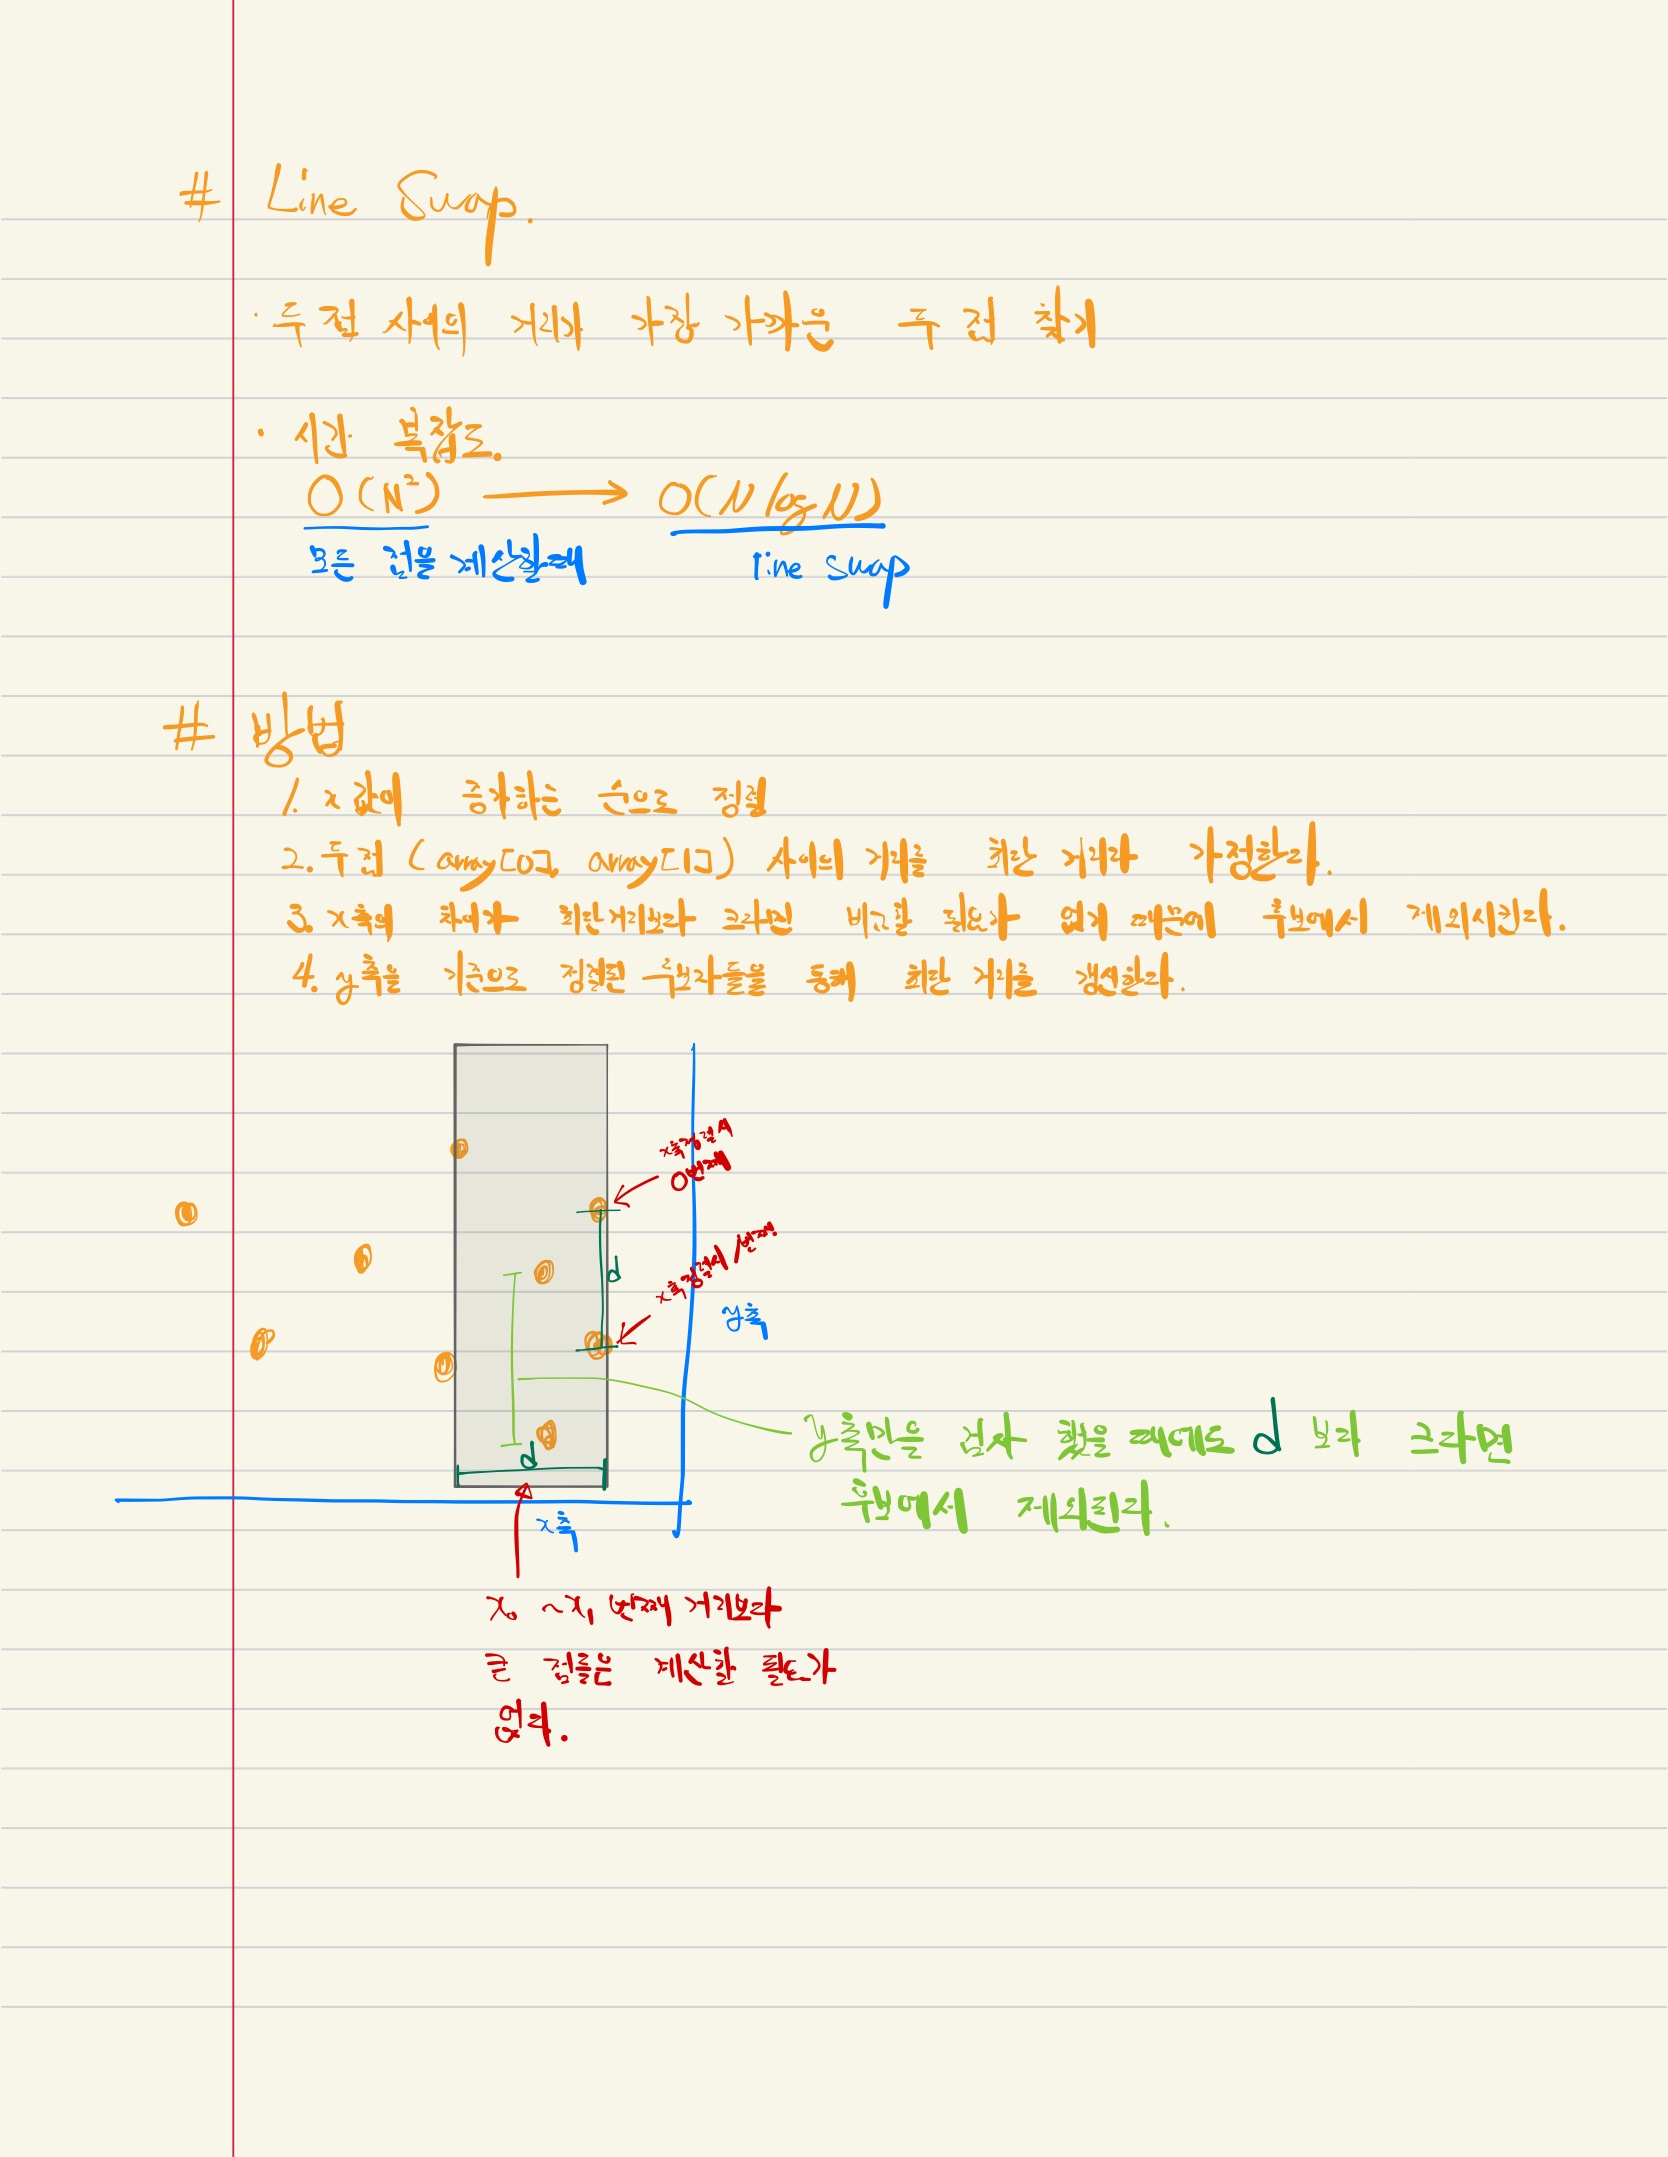 # Line Swap.
· 두 점 사이의 거리가 가장 가까운 두 점 찾기
· 시간 복잡도.
O(N²) → O(N log N)
모든 점을 계산할때 line swap
# 방법
1. x값이 증가하는 순으로 정렬
2. 두점 (array[0], array[1]) 사이의 거리를 최단 거리라 가정한다.
3. x축의 차이가 최단거리보다 크다면 비교할 필요가 없기 때문에 후보에서 제외시킨다.
4. y축을 기준으로 정렬된 후보자들을 통해 최단 거리를 갱신한다.
x축정렬시
0번째
d
x축정렬시 1번째
y축
y축만을 검사 했을 때에도 d 보다 크다면
후보에서 제외된다.
d
x축
x₀ ~x₁ 번째 거리보다
큰 점들은 계산할 필요가
없다.